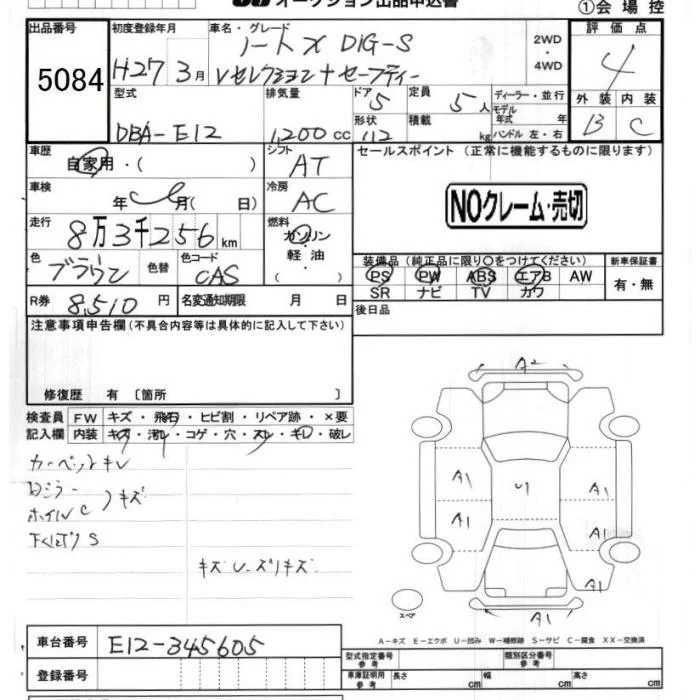 オークション出品申込書
①会場控
出品番号 初度登録年月 車名・グレード 評価点
5084 H27 3月 ノート X DIG-S 2WD ・ 4WD 4
Vセレクション+セーフティー
型式 排気量 ドア 5 定員 5人 ディーラー・並行 外装 内装
モデル年式 年
DBA-E12 1,200cc 形状 積載 kg ハンドル 左・右 B C
車歴 自家用・( ) シフト AT セールスポイント (正常に機能するものに限ります)
車検 年 月( 日) 冷房 AC NOクレーム・売切
走行 8万3千256km 燃料 ガソリン・軽油・( )
装備品(純正品に限り○をつけてください) 新車保証書
色 ブラウン 色替 色コード CAS PS PW ABS エアB AW 有・無
SR ナビ TV カワ
R券 8,510円 名変通知期限 月 日 後日品
注意事項申告欄(不具合内容等は具体的に記入して下さい)
修復歴 有 〔箇所 〕
検査員 FW キズ・飛石・ヒビ割・リペア跡・×要
記入欄 内装 キズ・汚れ・コゲ・穴・スレ・キレ・破レ
カーペットキレ
ホイルC キズ
S
キズ U ズリキズ
A2
A1 U1 A1
A1 A1
A1
A1
スペア
A-キズ E-エクボ U-凹み W-補修跡 S-サビ C-腐食 XX-交換済
車台番号 E12-345605
型式指定番号 参考 類別区分番号 参考
登録番号 車庫証明用 参考 長さ cm 幅 cm 高さ cm